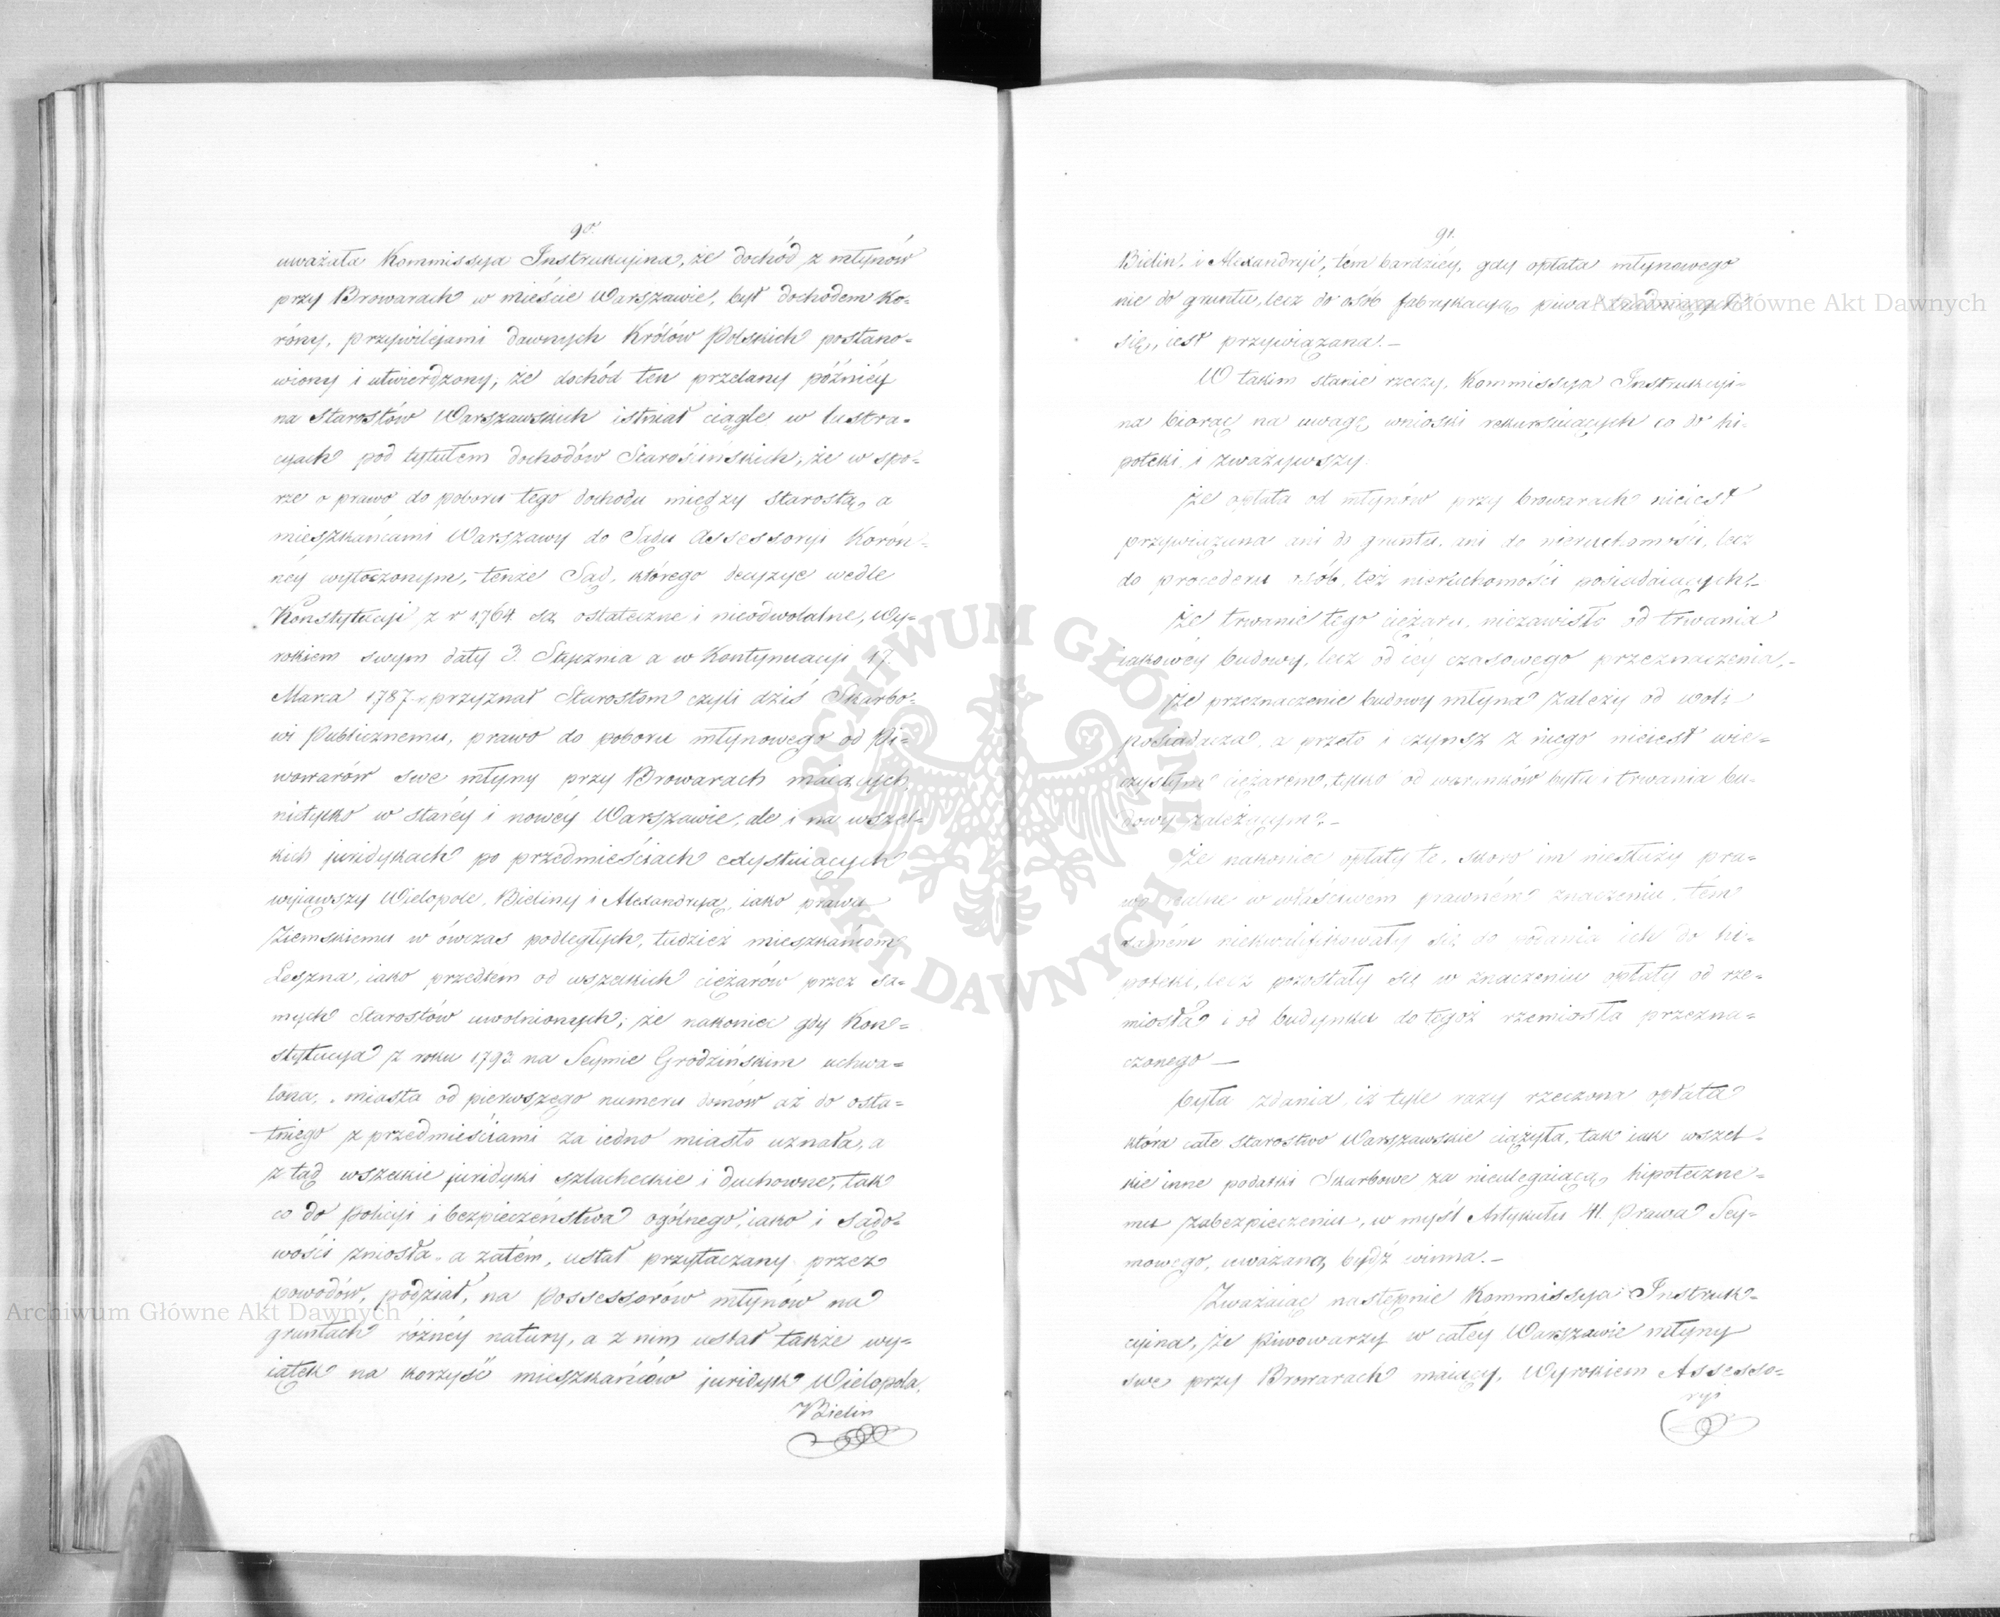 90.
uważała Kommissya Instrukcyjna, że dochód z młynów
przy Browarach w mieście Warszawie, był dochodem Ko=
róny, przywilejami dawnych Królów Polskich postano=
wiony i utwierdzony; że dochód ten przelany późniéy
na Starostów Warszawskich istniał ciągle w lustra=
cyach pod tytułem dochodów Starościńskich; że w spo=
rze o prawo do poboru tego dochodu między Starostą, a
mieszkańcami Warszawy do Sądu Assessoryi Korón=
néy wytoczonym, tenże Sąd, którego decyzye wedle
Konstytucyi z r 1764 są ostateczne i nieodwołalne, Wy=
rokiem swym daty 3. Stycznia a w Kontynuacyi 17.
Marca 1787 r. przyznał Starostom czyli dziś Skarbo=
wi Publicznemu, prawo do poboru młynowego od Pi=
wowarów swe młyny przy Browarach maiących,
nietylko w staréy i nowéy Warszawie, ale i na wszel=
kich juridykach po przedmieściach exystuiących
wyiąwszy Wielopole, Bieliny i Alexandryą, iako prawu
Ziemskiemu w ówczas podległych, tudzież mieszkańcom
Leszna, iako przedtém od wszelkich ciężarów przez sa=
mych Starostów uwolnionych; że nakoniec gdy Kon=
stytucya z roku 1793 na Seymie Grodzińskim uchwa=
lona, miasta od pierwszego numeru domów aż do osta=
tniego z przedmieściami za iedno miasto uznała, a
z tąd wszelkie juridyki szlacheckie i duchowne, tak
co do Policyi i bezpieczeństwa ogólnego, iako i sądo=
wości zniosła, a zatém, ustał przytaczany przez
powodów, podział, na Possessorów młynów na
gruntach różnéy natury, a z nim ustał także wy=
iątek na korzyść mieszkańców juridyk Wielopola,
Bielin
91.
Bielin, i Alexandryi, tém bardziéy, gdy opłata młynowego
nie do gruntu, lecz do osób fabrykacyą piwa trudniących
się, iest przywiązana.—
W takim stanie rzeczy, Kommissya Instrukcyi=
na biorąc na uwagę, wnioski rekursuiących co do hi=
poteki i zważywszy:
że opłata od młynów przy browarach nieiest
przywiązana ani do gruntu, ani do nieruchomości, lecz
do procederu osób, też nieruchomości posiadaiących,—
że trwanie tego ciężaru, niezawisło od trwania
iakowéy budowy, lecz od iéy czasowego przeznaczenia,—
że przeznaczenie budowy młyna zależy od woli
posiadacza, a przeto i czynsz z niego nieiest wie=
czystym ciężarem, tylko od warunków bytu i trwania bu=
dowy zależącym,—
że nakoniec opłaty te, skoro im niesłuży pra=
wo realne w właściwém prawném znaczeniu, tém
samém niekwalifikowały się do podania ich do hi=
poteki, lecz pozostały się w znaczeniu opłaty od rze=
miosła i od budynku do tegoż rzemiosła przezna=
czonego —
była zdania, iż tyle razy rzeczona opłata
która całe Starostwo Warszawskie ciążyła, tak iak wszel=
kie inne podatki Skarbowe za nieulegaiącą hipoteczne=
mu zabezpieczeniu, w myśl Artykułu 41 Prawa Sey=
mowego, uważaną bydź winna.—
Zważaiąc następnie Kommissya Instruk=
cyina, że Piwowarzy w całéy Warszawie młyny
swe przy Browarach maiący, Wyrokiem Assesso=
ryi
Archiwum Główne Akt Dawnych
Archiwum Główne Akt Dawnych
ARCHIWUM GŁÓWNE
AKT DAWNYCH